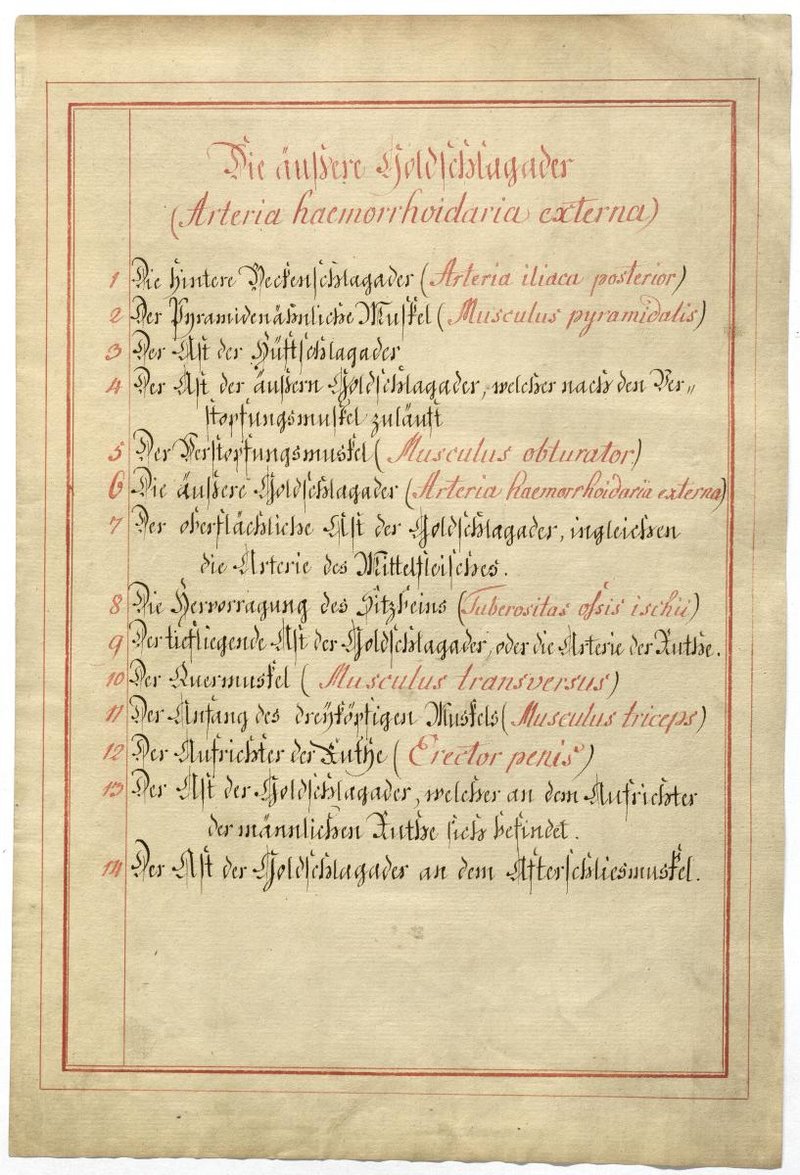 Die äußere Goldschlagader
(Arteria haemorrhoidaria externa)
1 Die hintere Beckenschlagader (Arteria iliaca posterior)
2 Der Pyramidenähnliche Muskel (Musculus pyramidalis)
3 Der Ast der Hüftschlagader
4 Der Ast der äußern Goldschlagader, welcher nach den Ver„
stopfungsmuskel zuläuft
5 Der Verstopfungsmuskel (Musculus obturator)
6 Die äußere Goldschlagader (Arteria haemorrhoidaria externa)
7 Der oberflächliche Ast der Goldschlagader, ingleichen
die Arterie des Mittelfleisches.
8 Die Hervorragung des Sitzbeins (Tuberositas ossis ischii)
9 Der tiefliegende Ast der Goldschlagader, oder die Arterie der Ruthe.
10 Der Quermuskel (Musculus transversus)
11 Der Anfang des dreyköpfigen Muskels (Musculus triceps)
12 Der Aufrichter der Ruthe (Erector penis)
13 Der Ast der Goldschlagader, welcher an dem Aufrichter
der männlichen Ruthe sich befindet.
14 Der Ast der Goldschlagader an dem Afterschliesmuskel.